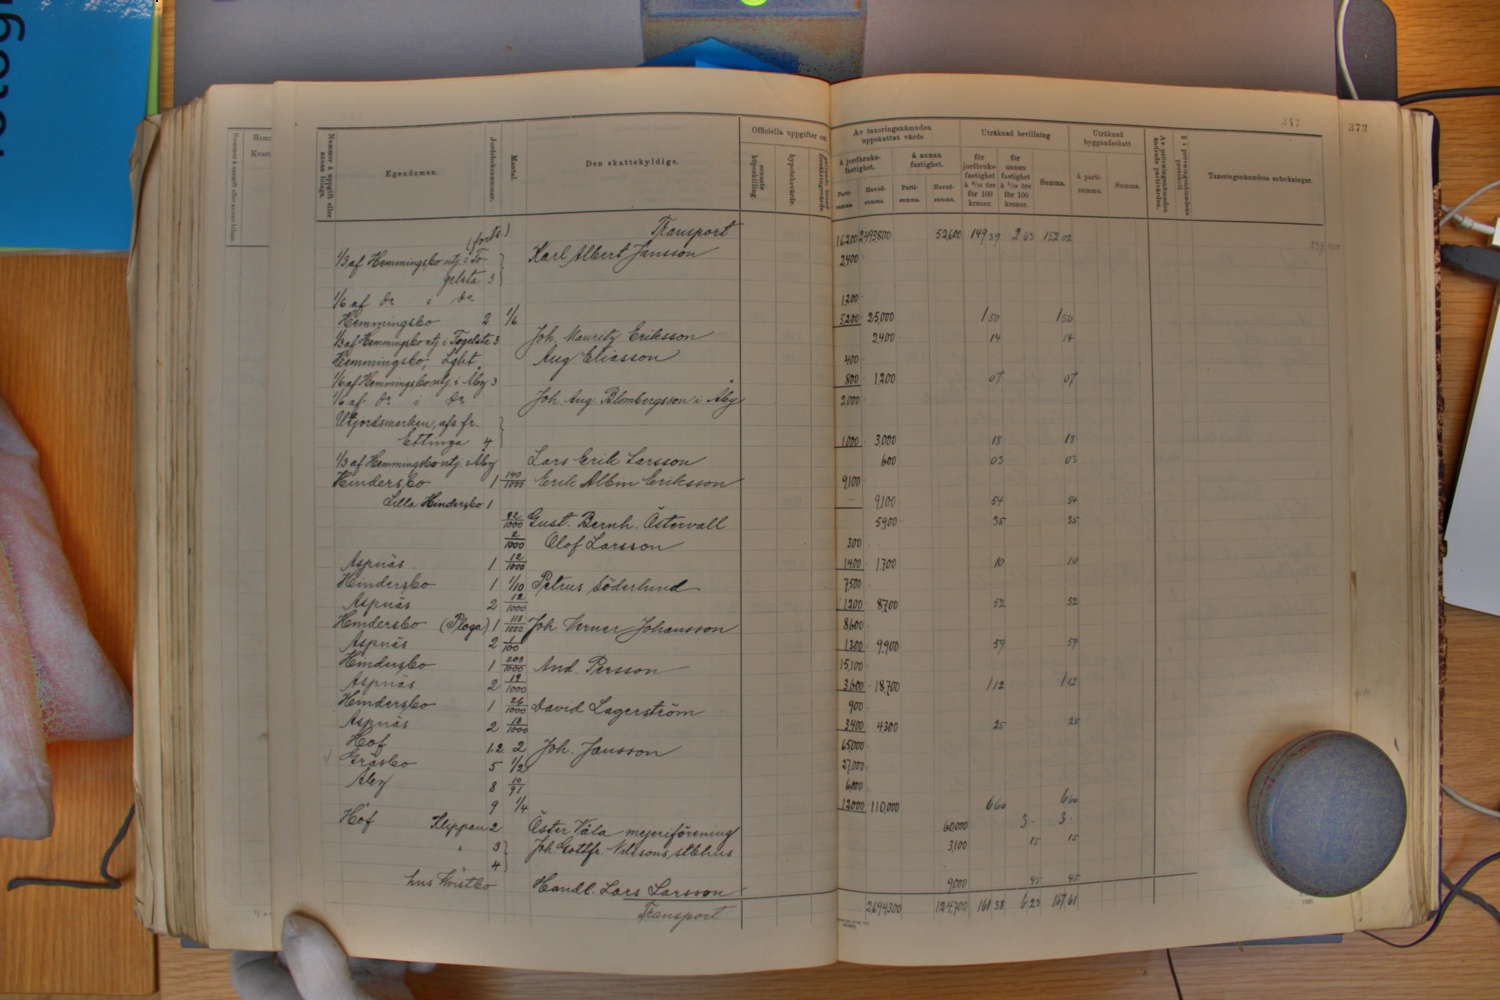 247
273
Nummer å uppgift eller annan bilaga.
Egendomen.
Jordeboksnummer.
Mantal.
Den skattskyldige.
Officiella uppgifter om
senaste köpeskilling.
hypoteksvärde.
Av taxeringsnämnden uppskattat värde
å jordbruks-fastighet.
å annan fastighet.
Parti-summa.
Huvud-summa.
Parti-summa.
Huvud-summa.
Uträknad bevillning
för jordbruks-fastighet
för 100 kronor.
för annan fastighet
för 100 kronor.
Summa.
Uträknad byggnadsskatt
à parti-summa.
Summa.
Taxeringsnämndens anteckningar.
(forts) Transport 16200 2493800 52600 149 59 2 63 152 02
1/3 af Hemmingsbo utj. i To- Karl Albert Jansson 2400
gelsta 3
1/6 af do i do 1200
Hemmingsbo 2 1/6 5200 25000 1 50 1 50
1/3 af Hemmingsbo utj i Togelsta 3 Joh. Mauritz Eriksson 2400 14 14
Hemmingsbo, Lght. Aug Eliasson 400
1/6 af Hemmingsbo utj. i Åby 3 800 1200 07 07
1/6 af do i do Joh. Aug. Blombergsson i Åby 2000
Utjordsmarken, afs. fr.
Ettinga 4 1000 3,000 18 18
1/3 af Hemmingsbo utj. i Åby Lars Erik Larsson 600 03 03
Hindersbo 1 140/1000 Erik Albin Eriksson 9,100
Lilla Hindersbo 1 – 9,100 54 54
92/1000 Gust. Bernh. Östervall 5900 35 35
2/1000 Olof Larsson 300
Aspnäs 1 12/1000 1400 1700 10 10
Hindersbo 1 1/10 Petrus Söderlund 7500
Aspnäs 2 12/1000 1200 8700 52 52
Hindersbo (Ploga) 1 118/1000 Joh. Verner Johansson 8600
Aspnäs 2 1/100 1300 9,900 59 59
Hindersbo 1 209/1000 And. Persson 15,100
Aspnäs 2 19/1000 3,600 18,700 1 12 1 12
Hindersbo 1 24/1000 David Lagerström 900
Aspnäs 2 18/1000 3400 4300 25 25
Hof 1.2 2 Joh. Jansson 65,000
Gräsbo 5 1/2 27,000
Åby 8 10/91 6000
9 1/4 12000 110,000 6 60 6 60
Hof Klippan 2 Öster Våla mejeriförening 60,000 3 - 3 -
" 3 Joh. Gottfr. Nilssons stbhus 3,100 15 15
4
hus Kvistbo Handl. Lars Larsson 9,000 45 45
Transport 2694300 124700 161 38 6 23 167 61